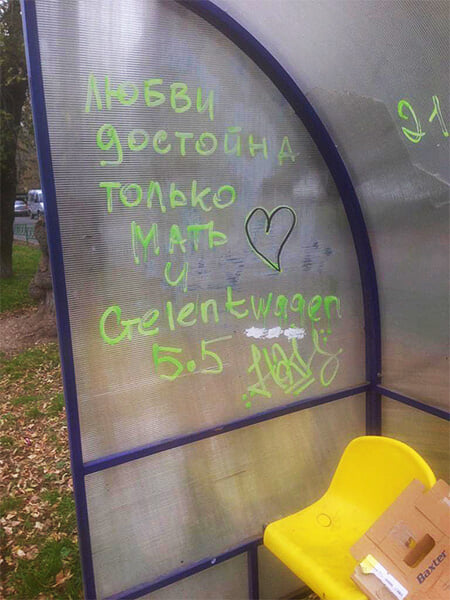 ЛЮБВИ
достойна
только
МАТЬ
И
Gelentwagen
5.5
21
Baxter